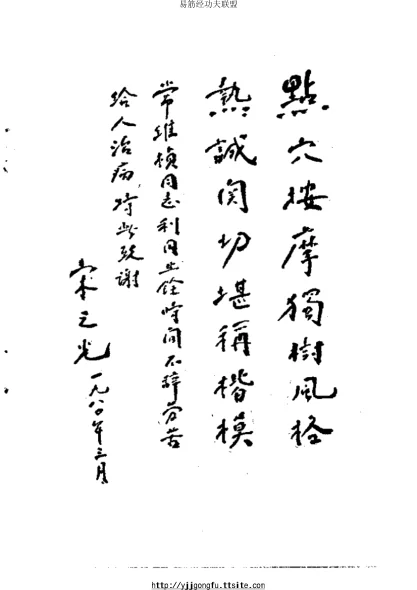 易筋经功夫联盟
點穴按摩獨樹風格
熱誠関切堪稱楷模
常維楨同志利用业餘時间不辞劳苦
给人治病,特此致谢
宋之光
一九八〇年三月
http://yjjgongfu.ttsite.com